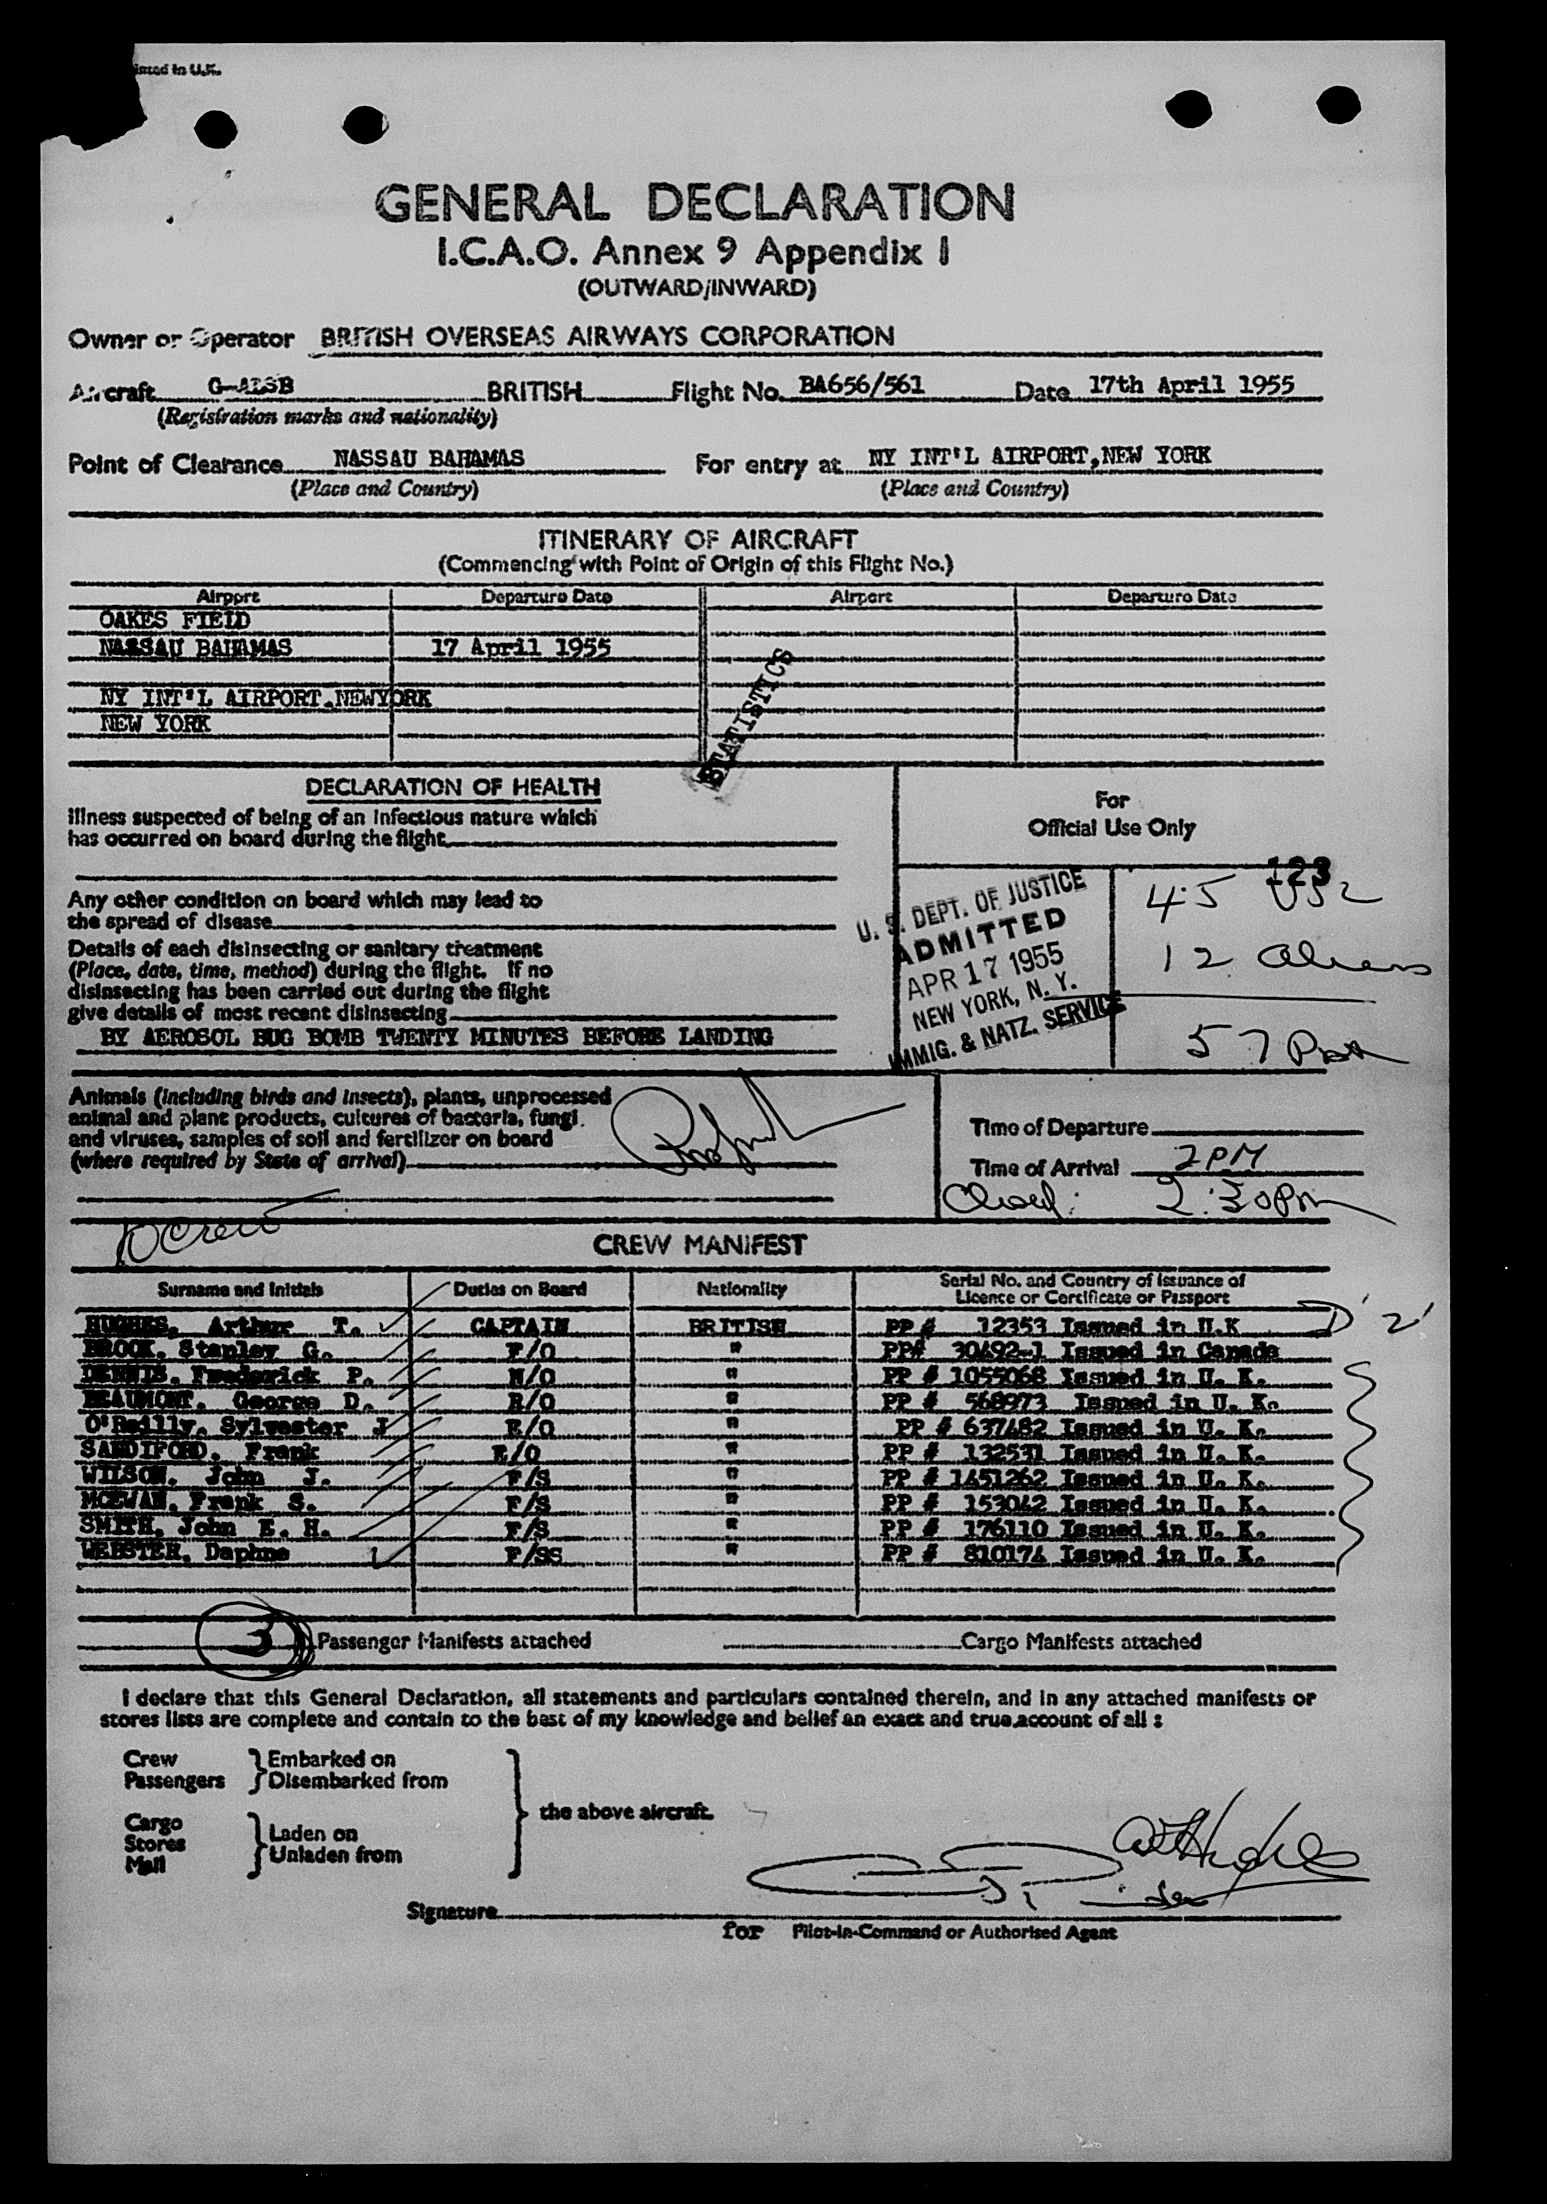 inted in U.K.
GENERAL DECLARATION
I.C.A.O. Annex 9 Appendix I
(OUTWARD/INWARD)
Owner or Operator BRITISH OVERSEAS AIRWAYS CORPORATION
Aircraft G-ALSB BRITISH Flight No. BA656/561 Date 17th April 1955
(Registration marks and nationality)
Point of Clearance NASSAU BAHAMAS For entry at NY INT'L AIRPORT,NEW YORK
(Place and Country) (Place and Country)
ITINERARY OF AIRCRAFT
(Commencing with Point of Origin of this Flight No.)
Airport Departure Date Airport Departure Date
OAKES FIELD
NASSAU BAHAMAS 17 April 1955
NY INT'L AIRPORT.NEWYORK
NEW YORK
STATISTICS
DECLARATION OF HEALTH
Illness suspected of being of an infectious nature which
has occurred on board during the flight
Any other condition on board which may lead to
the spread of disease
Details of each disinsecting or sanitary treatment
(Place, date, time, method) during the flight. If no
disinsecting has been carried out during the flight
give details of most recent disinsecting
BY AEROSOL BUG BOMB TWENTY MINUTES BEFORE LANDING
For
Official Use Only
123
U. S. DEPT. OF JUSTICE
ADMITTED
APR 17 1955
NEW YORK, N. Y.
IMMIG. & NATZ. SERVICE
45
12 aliens
57
Animals (including birds and insects), plants, unprocessed
animal and plant products, cultures of bacteria, fungi
and viruses, samples of soil and fertilizer on board
(where required by State of arrival)
Time of Departure
Time of Arrival 2 PM
Closed: 2:30PM
10 Crew
CREW MANIFEST
Surname and Initials Duties on Board Nationality Serial No. and Country of Issuance of
Licence or Certificate or Passport
HUGHES, Arthur T. CAPTAIN BRITISH PP # 12353 Issued in U.K
BROOK, Stanley G. F/O " PP# 30492-1 Issued in Canada
DENNIS, Frederick P. N/O " PP # 1055068 Issued in U. K.
BEAUMONT, George D. R/O " PP # 568973 Issued in U. K.
O'Reilly, Sylvester J E/O " PP # 637482 Issued in U. K.
SANDIFORD, Frank E/O " PP # 132531 Issued in U. K.
WILSON, John J. F/S " PP # 1451262 Issued in U. K.
MCEWAN, Frank S. F/S " PP # 153042 Issued in U. K.
SMITH, John E. H. F/S " PP # 176110 Issued in U. K.
WEBSTER, Daphne F/SS " PP # 810174 Issued in U. K.
3 Passenger Manifests attached Cargo Manifests attached
I declare that this General Declaration, all statements and particulars contained therein, and in any attached manifests or
stores lists are complete and contain to the best of my knowledge and belief an exact and true account of all :
Crew } Embarked on
Passengers } Disembarked from
the above aircraft.
Cargo
Stores } Laden on
Mail } Unladen from
Signature
for Pilot-in-Command or Authorised Agent